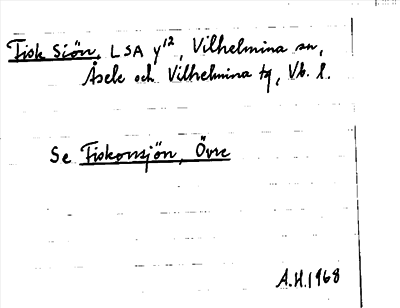 Fisk Siön, LSA y¹², Vilhelmina sn,
Åsele och Vilhelmina tg, Vb. l.
Se Fiskonsjön, Övre
A.H. 1968